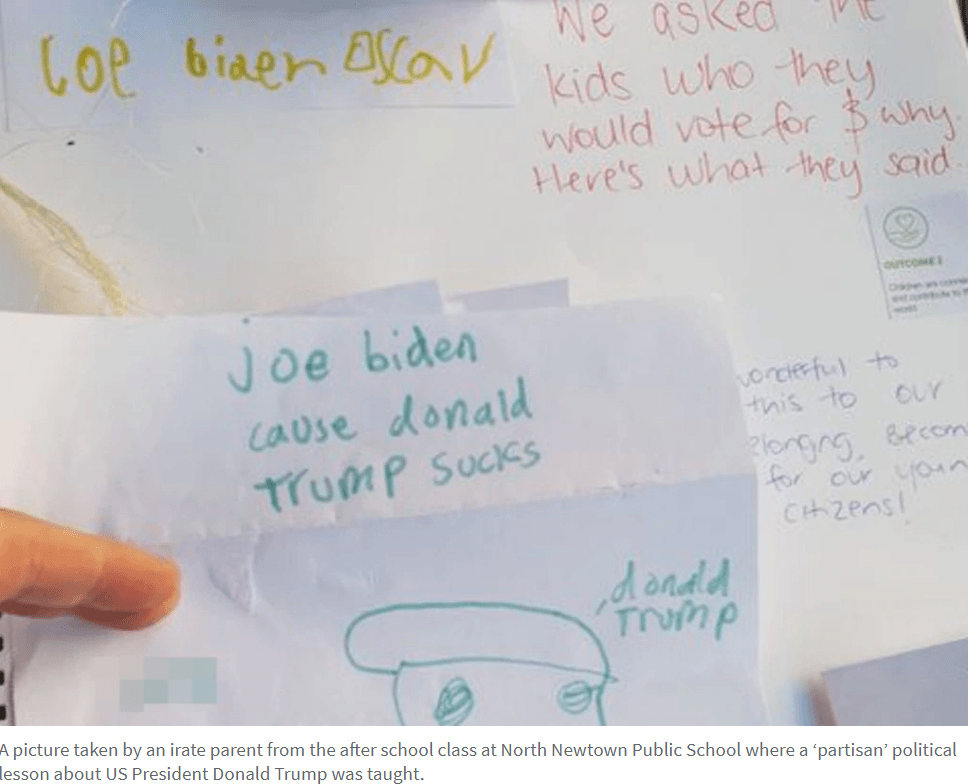 We asked the
kids who they
would vote for & why.
Here's what they said.
Joe biden Oscar
OUTCOME 2
Children are
and contribute to
world
joe biden
cause donald
Trump sucks
wonderful to
this to our
Belonging, Becom
for our youn
citizens!
donald
Trump
A picture taken by an irate parent from the after school class at North Newtown Public School where a ‘partisan’ political
lesson about US President Donald Trump was taught.